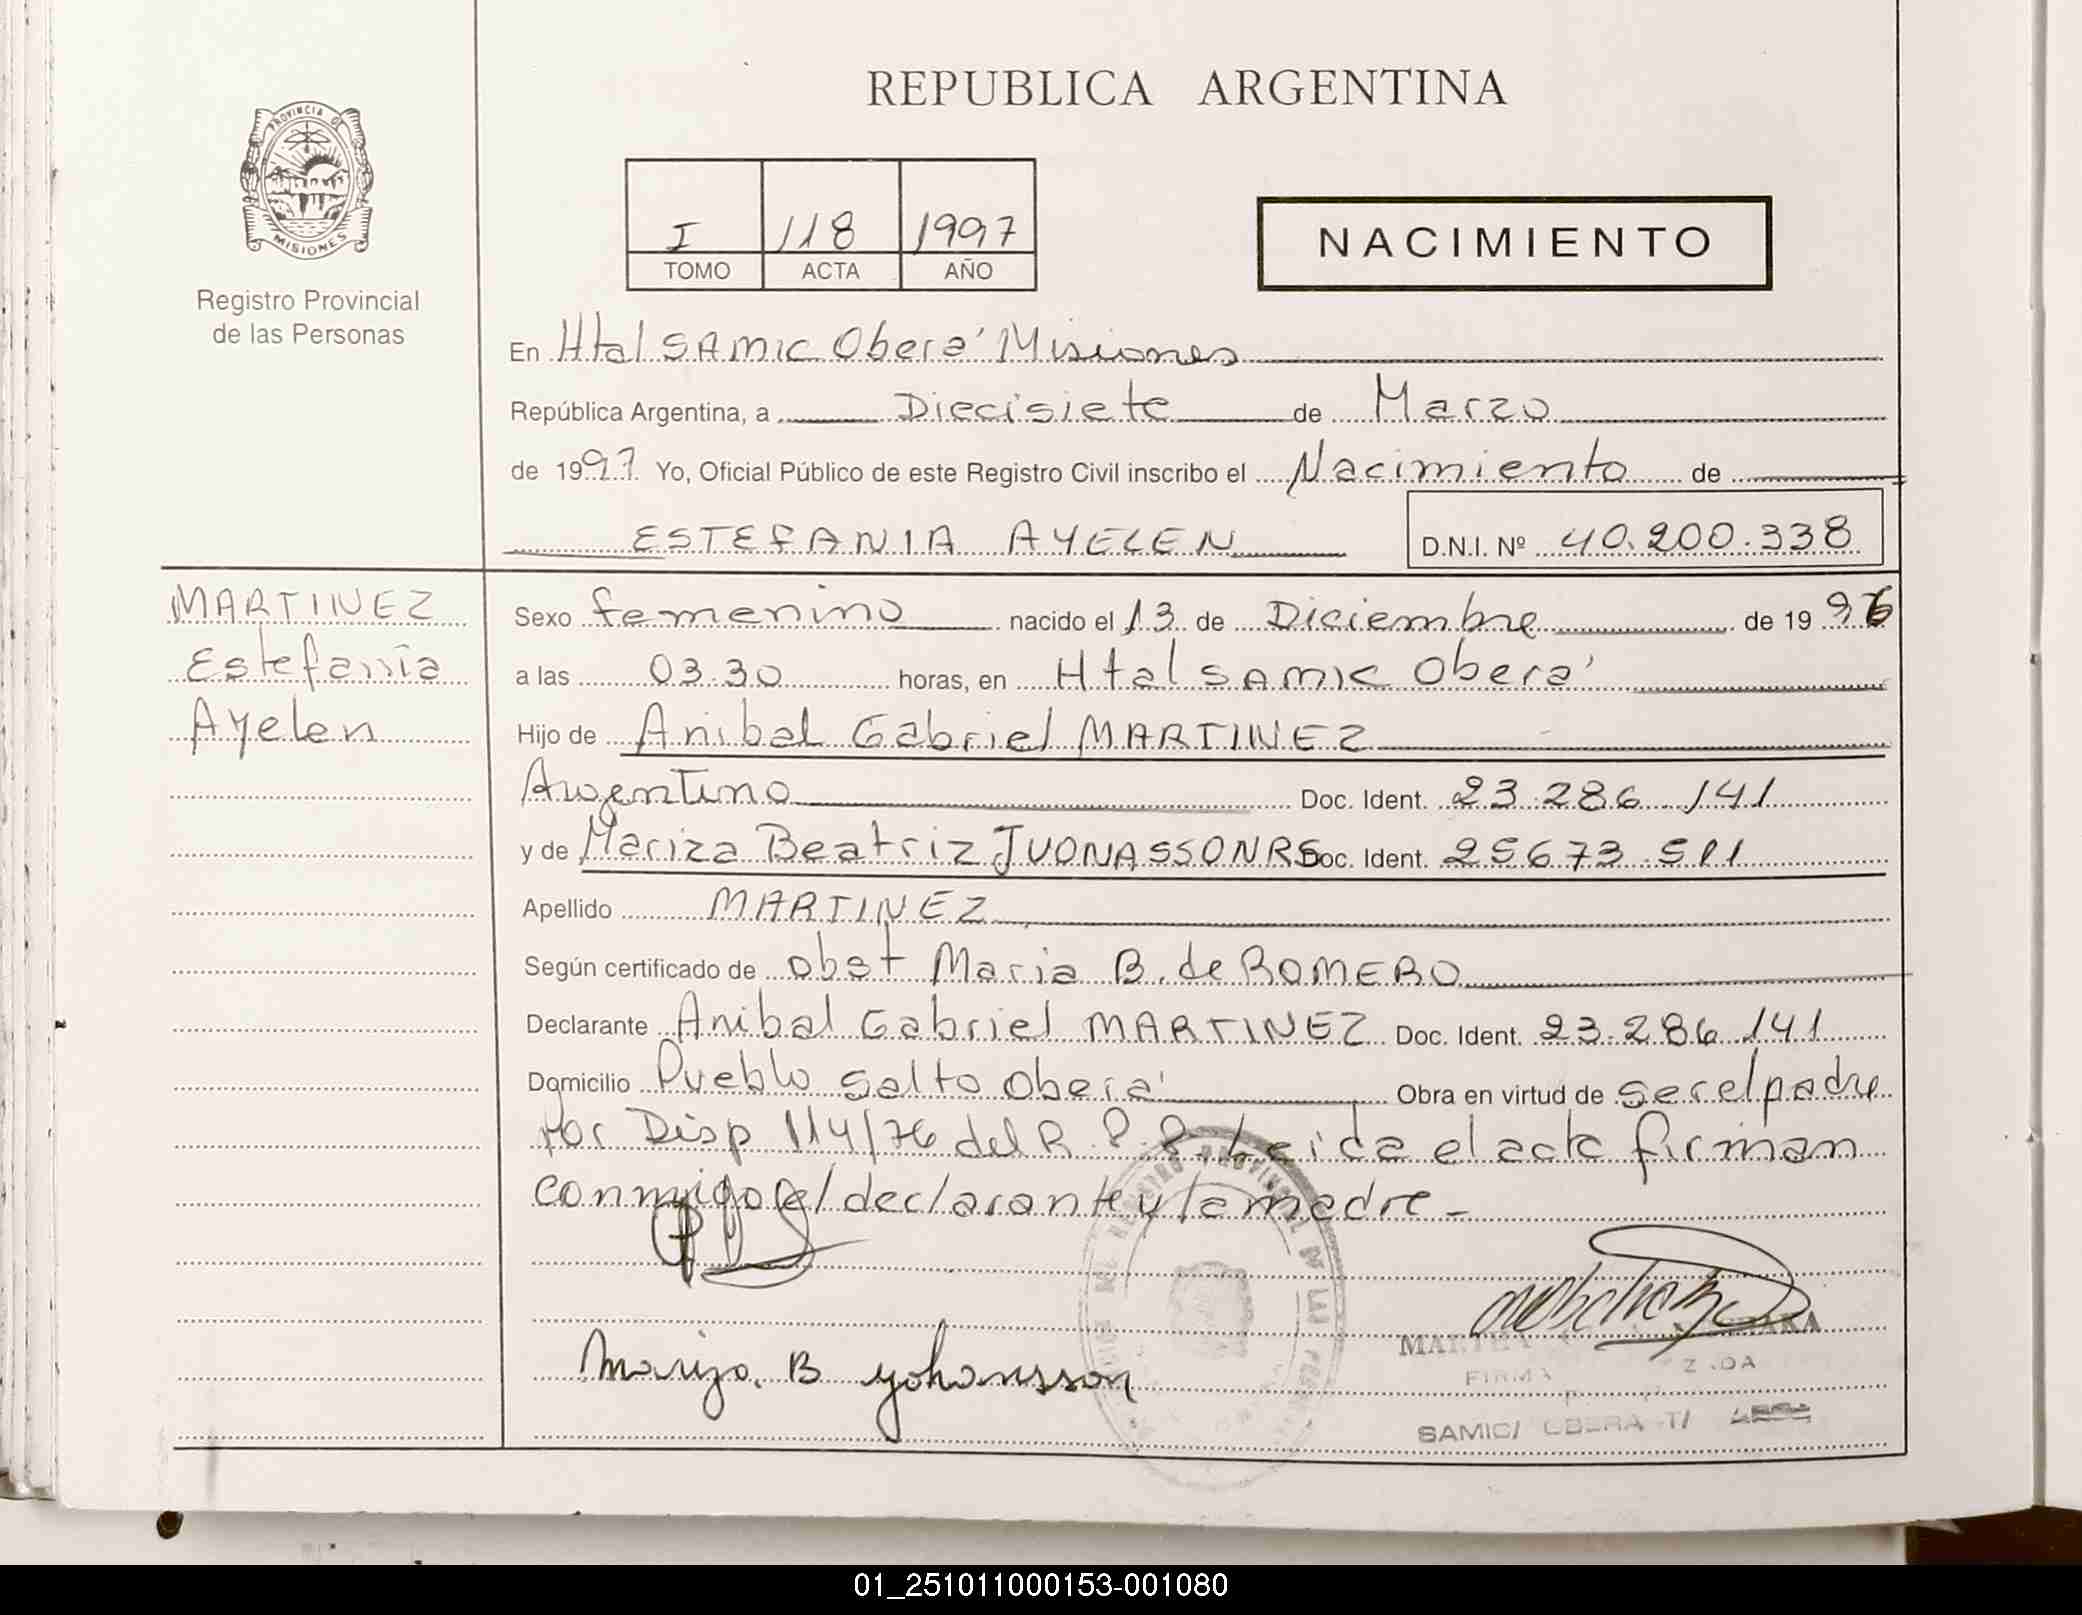 REPUBLICA ARGENTINA
PROVINCIA DE
MISIONES
Registro Provincial
de las Personas
I 118 1997
TOMO ACTA AÑO
NACIMIENTO
En Htal SAMIC Oberá Misiones
República Argentina, a Diecisiete de Marzo
de 1997 Yo, Oficial Público de este Registro Civil inscribo el Nacimiento de
ESTEFANIA AYELEN D.N.I. Nº 40.200.338
MARTINEZ
Estefanía
Ayelen
Sexo femenino nacido el 13 de Diciembre de 1996
a las 03.30 horas, en Htal SAMIC Oberá
Hijo de Anibal Gabriel MARTINEZ
Argentino Doc. Ident. 23.286.141
y de Mariza Beatriz JUONASSONRS Doc. Ident. 25.673.511
Apellido MARTINEZ
Según certificado de obst Maria B. de ROMERO
Declarante Anibal Gabriel MARTINEZ Doc. Ident. 23.286.141
Domicilio Pueblo Salto Oberá Obra en virtud de ser el padre
Por Disp 114/76 del R.P.P. Leida el acta firman
conmigo el declarante y la madre -
Mariza. B yohansson
SAMIC/ OBERA
01_251011000153-001080